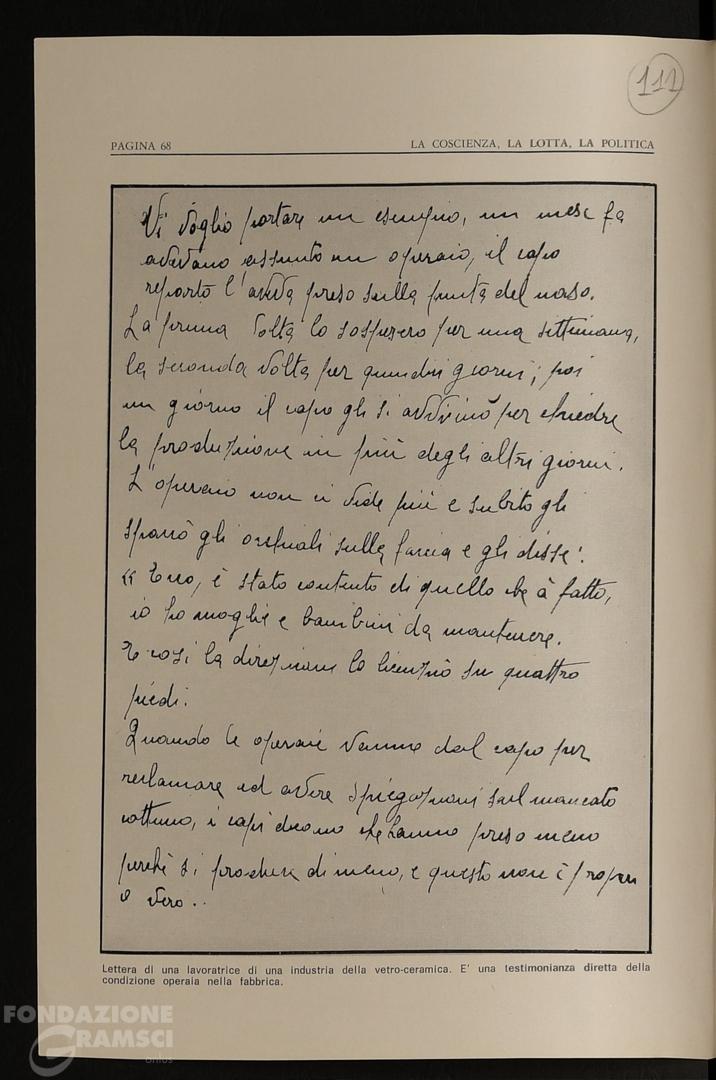 111
PAGINA 68 LA COSCIENZA, LA LOTTA, LA POLITICA
Vi voglio portare un esempio, un mese fa
avevano assunto un operaio, il capo
reparto l'aveva preso sulla punta del naso.
La prima volta lo sospesero per una settimana,
la seconda volta per quindici giorni; poi
un giorno il capo gli si avvicinò per chiedere
la produzione in più degli altri giorni.
L'operaio non ci vide più e subito gli
sparò gli occhiali sulla faccia e gli disse:
« Ecco, è stato contento di quello che à fatto,
io ho moglie e bambini da mantenere.
E così la direzione lo licenziò su quattro
piedi.
Quando le operaie vanno dal capo per
reclamare ed avere spiegazioni sul mancato
cottimo, i capi dicono che hanno preso meno
perchè si produce di meno, e questo non è propri
o vero..
Lettera di una lavoratrice di una industria della vetro-ceramica. E' una testimonianza diretta della
condizione operaia nella fabbrica.
FONDAZIONE
GRAMSCI
onlus